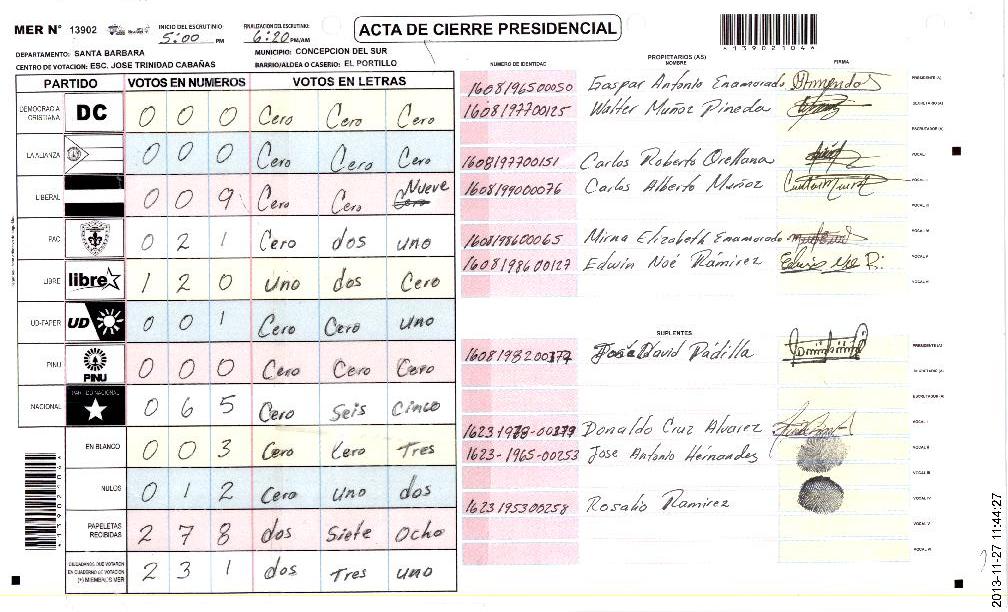 MER Nº 13902
INICIO DEL ESCRUTINIO:
5:00 PM
FINALIZACION DEL ESCRUTINIO:
6:20 PM/AM
ACTA DE CIERRE PRESIDENCIAL
*139021046*
DEPARTAMENTO: SANTA BARBARA
MUNICIPIO: CONCEPCION DEL SUR
CENTRO DE VOTACION: ESC. JOSE TRINIDAD CABAÑAS
BARRIO/ALDEA O CASERIO: EL PORTILLO
PARTIDO VOTOS EN NUMEROS VOTOS EN LETRAS
DEMOCRACIA CRISTIANA DC 0 0 0 Cero Cero Cero
LA ALIANZA 0 0 0 Cero Cero Cero
LIBERAL 0 0 9 Cero Cero Nueve
PAC 0 2 1 Cero dos uno
LIBRE libre 1 2 0 uno dos Cero
UD-FAPER UD 0 0 1 Cero Cero uno
PINU PINU 0 0 0 Cero Cero Cero
NACIONAL 0 6 5 Cero Seis Cinco
EN BLANCO 0 0 3 Cero Cero Tres
NULOS 0 1 2 Cero uno dos
PAPELETAS RECIBIDAS 2 7 8 dos Siete Ocho
CIUDADANOS QUE VOTARON EN CUADERNO DE VOTACION (+) MIEMBROS MER 2 3 1 dos Tres uno
PROPIETARIOS (AS)
NUMERO DE IDENTIDAD NOMBRE FIRMA
1608196500050 Gaspar Antonio Enamorado PRESIDENTE (A)
1608197700125 Walter Muñoz Pineda SECRETARIO (A)
ESCRUTADOR (A)
1608197700151 Carlos Roberto Orellana VOCAL I
1608199000076 Carlos Alberto Muñoz VOCAL II
VOCAL III
1608198600065 Mirna Elizabeth Enamorado VOCAL IV
1608198600127 Edwin Noé Rámirez Edwin Noe R. VOCAL V
VOCAL VI
SUPLENTES
José David Padilla PRESIDENTE (A)
SECRETARIO (A)
ESCRUTADOR (A)
Donaldo Cruz Alvarez VOCAL I
1623-1965-00253 Jose Antonio Hernández VOCAL II
VOCAL III
1623195300258 Rosalio Ramirez VOCAL IV
VOCAL V
VOCAL VI
2013-11-27 11:44:27